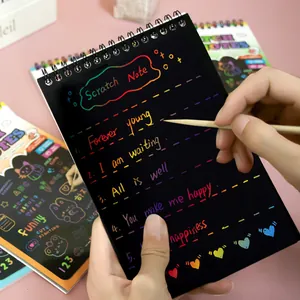 Scratch Note
Forever young
2. I am waiting
3. All is well
4. You make me happy
5. happiness
Funny
123
123